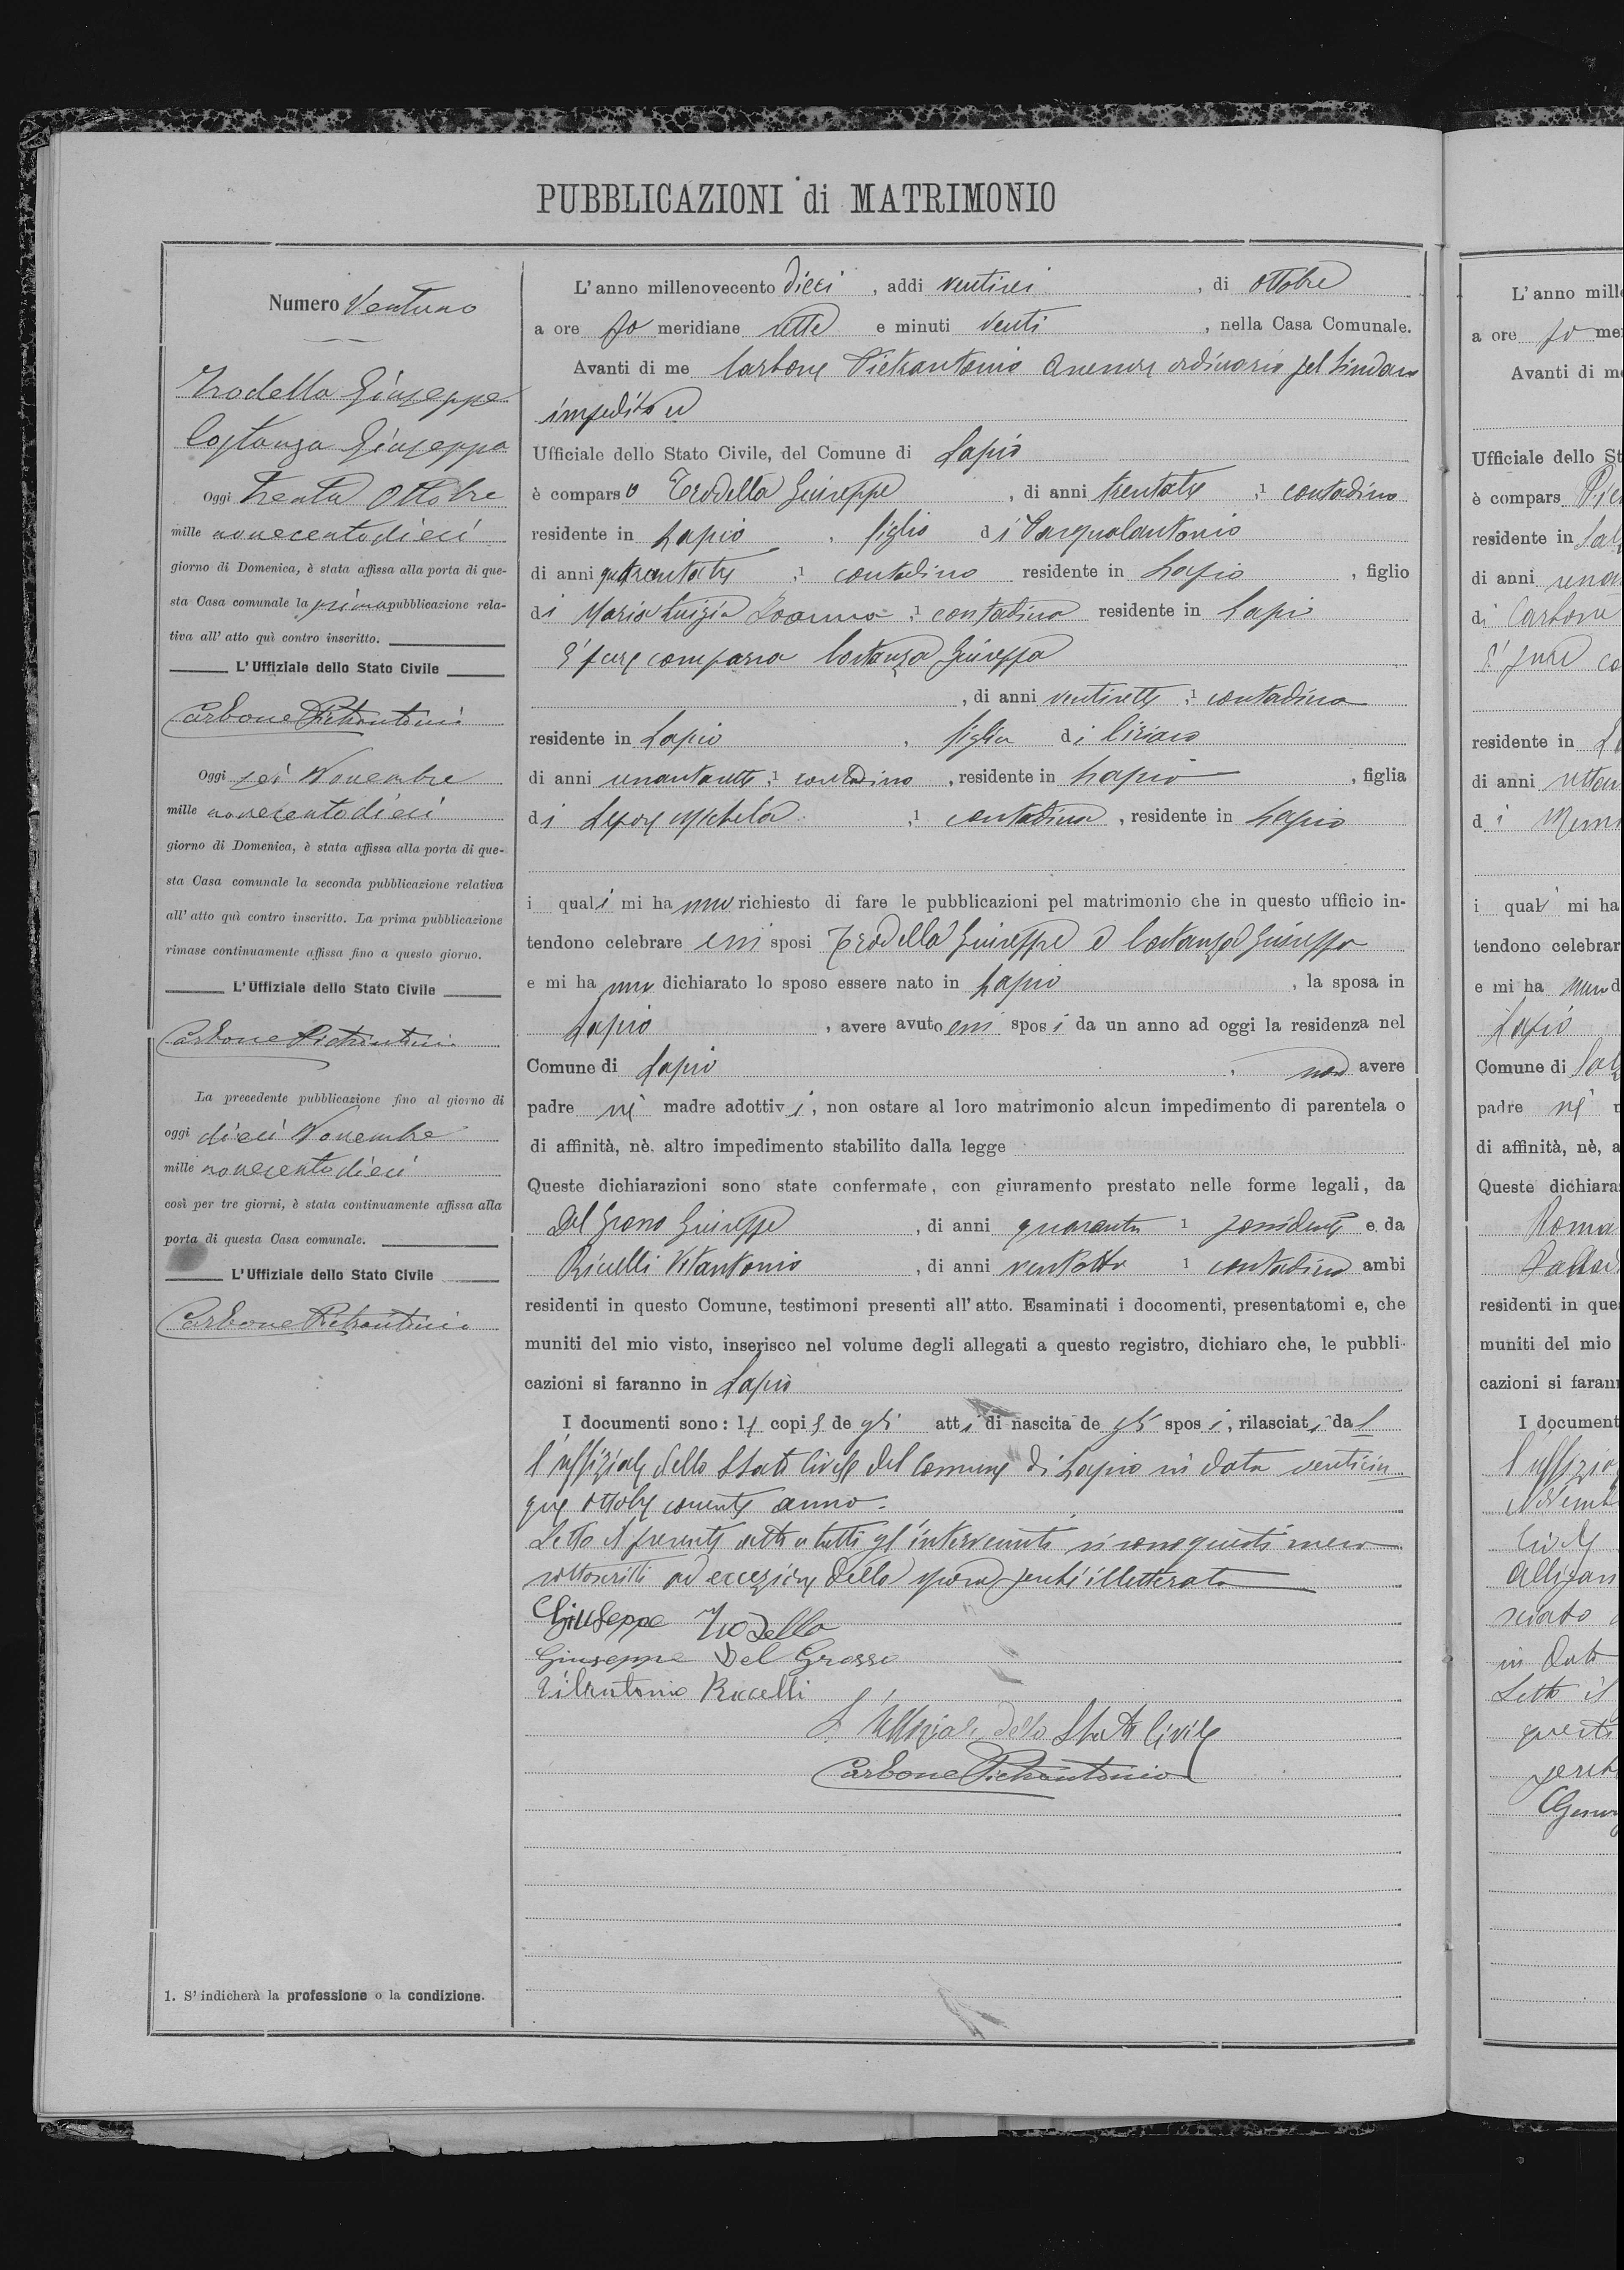 PUBBLICAZIONI di MATRIMONIO
Numero Ventuno
Trodella Giuseppe
Costanza Giuseppa
Oggi Trenta Ottobre
mille novecentodieci
giorno di Domenica, è stata affissa alla porta di que-
sta Casa comunale la prima pubblicazione rela-
tiva all' atto quì contro inscritto.
L'Uffiziale dello Stato Civile
Carbone Pietrantonio
Oggi sei Novembre
mille novecentodieci
giorno di Domenica, è stata affissa alla porta di que-
sta Casa comunale la seconda pubblicazione relativa
all' atto quì contro inscritto. La prima pubblicazione
rimase continuamente affissa fino a questo giorno.
L'Uffiziale dello Stato Civile
Carbone Pietrantonio
La precedente pubblicazione fino al giorno di
oggi dieci Novembre
mille novecentodieci
così per tre giorni, è stata continuamente affissa alla
porta di questa Casa comunale.
L'Uffiziale dello Stato Civile
Carbone Pietrantonio
1. S' indicherà la professione o la condizione.
L' anno millenovecento dieci, addi ventisei, di ottobre
a ore po meridiane sette e minuti venti, nella Casa Comunale.
Avanti di me Carbone Pietrantonio Assessore ordinario pel Sindaco
impedito
Ufficiale dello Stato Civile, del Comune di Lapio
è comparso Trodella Giuseppe, di anni trentatre,1 contadino
residente in Lapio, figlio di Pasqualantonio
di anni ,1 contadino residente in Lapio, figlio
di Maria Luigia ,1 contadina residente in Lapio
E' pure comparsa Costanza Giuseppa
, di anni ventisette,1 contadina
residente in Lapio, figlia di Ciriaco
di anni ,1 contadino, residente in Lapio, figlia
di Lepore Michela,1 contadina, residente in Lapio
i quali mi hanno richiesto di fare le pubblicazioni pel matrimonio che in questo ufficio in-
tendono celebrare essi sposi Trodella Giuseppe e Costanza Giuseppa
e mi hanno dichiarato lo sposo essere nato in Lapio, la sposa in
Lapio, avere avuto essi sposi da un anno ad oggi la residenza nel
Comune di Lapio, non avere
padre nè madre adottivi, non ostare al loro matrimonio alcun impedimento di parentela o
di affinità, nè, altro impedimento stabilito dalla legge
Queste dichiarazioni sono state confermate, con giuramento prestato nelle forme legali, da
Del Grosso Giuseppe, di anni quaranta 1 possidente e da
Riccelli Vitantonio, di anni ventotto 1 contadino ambi
residenti in questo Comune, testimoni presenti all' atto. Esaminati i docomenti, presentatomi e, che
muniti del mio visto, inserisco nel volume degli allegati a questo registro, dichiaro che, le pubbli-
cazioni si faranno in Lapio
I documenti sono: le copie degli atti di nascita degli sposi, rilasciati dal
l'uffiziale dello Stato Civile del Comune di Lapio in data venticin
que ottobre corrente anno.
Letto il presente atto a tutti gl'intervenuti si sono questi meco
sottoscritti ad eccezione della sposa perchè illetterata
Giuseppe Trodella
Giuseppe Del Grosso
Vitantonio Riccelli
L'Uffiziale dello Stato Civile
Carbone Pietrantonio
L' anno mille
a ore po me
Avanti di me
Ufficiale dello St
è compars
residente in
di anni
di Carbone
E' pure co
residente in
di anni
di
i quali mi ha
tendono celebrar
e mi hanno d
Lapio
Comune di
padre nè
di affinità, nè, a
Queste dichiara
residenti in que
muniti del mio
cazioni si farann
I document
l'uffizia
Novemb
in data
Letto il
questi